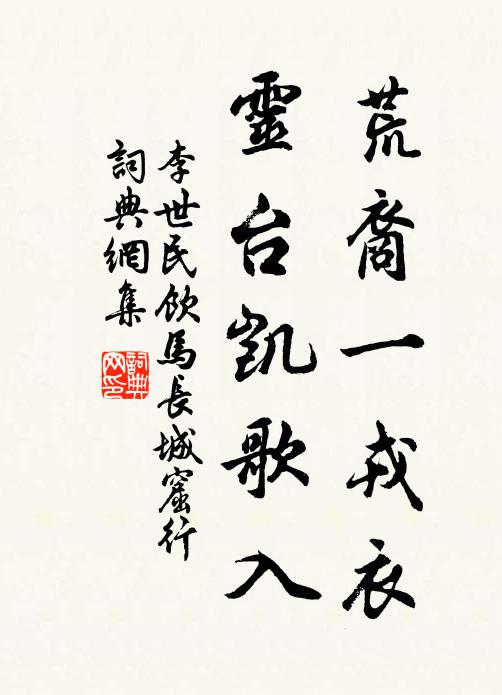 荒裔一戎衣
靈台凱歌入
李世民飲馬長城窟行
詞典網集
詞典网印